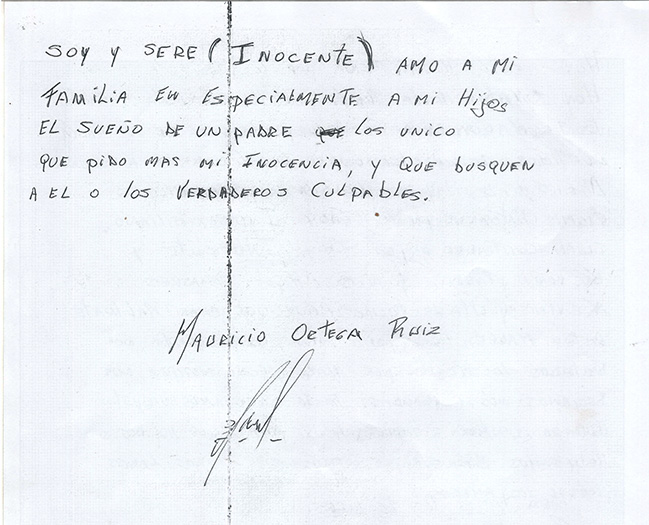 SOY Y SERE (INOCENTE) AMO A MI
FAMILIA EN ESPECIALMENTE A MI Hijos
EL SUEÑO DE UN PADRE que los UNICO
QUE PIDO MAS MI INOCENCIA, Y QUE BUSQUEN
A EL O los VERDADEROS CULPABLES.
MAURICIO ORTEGA RUIZ